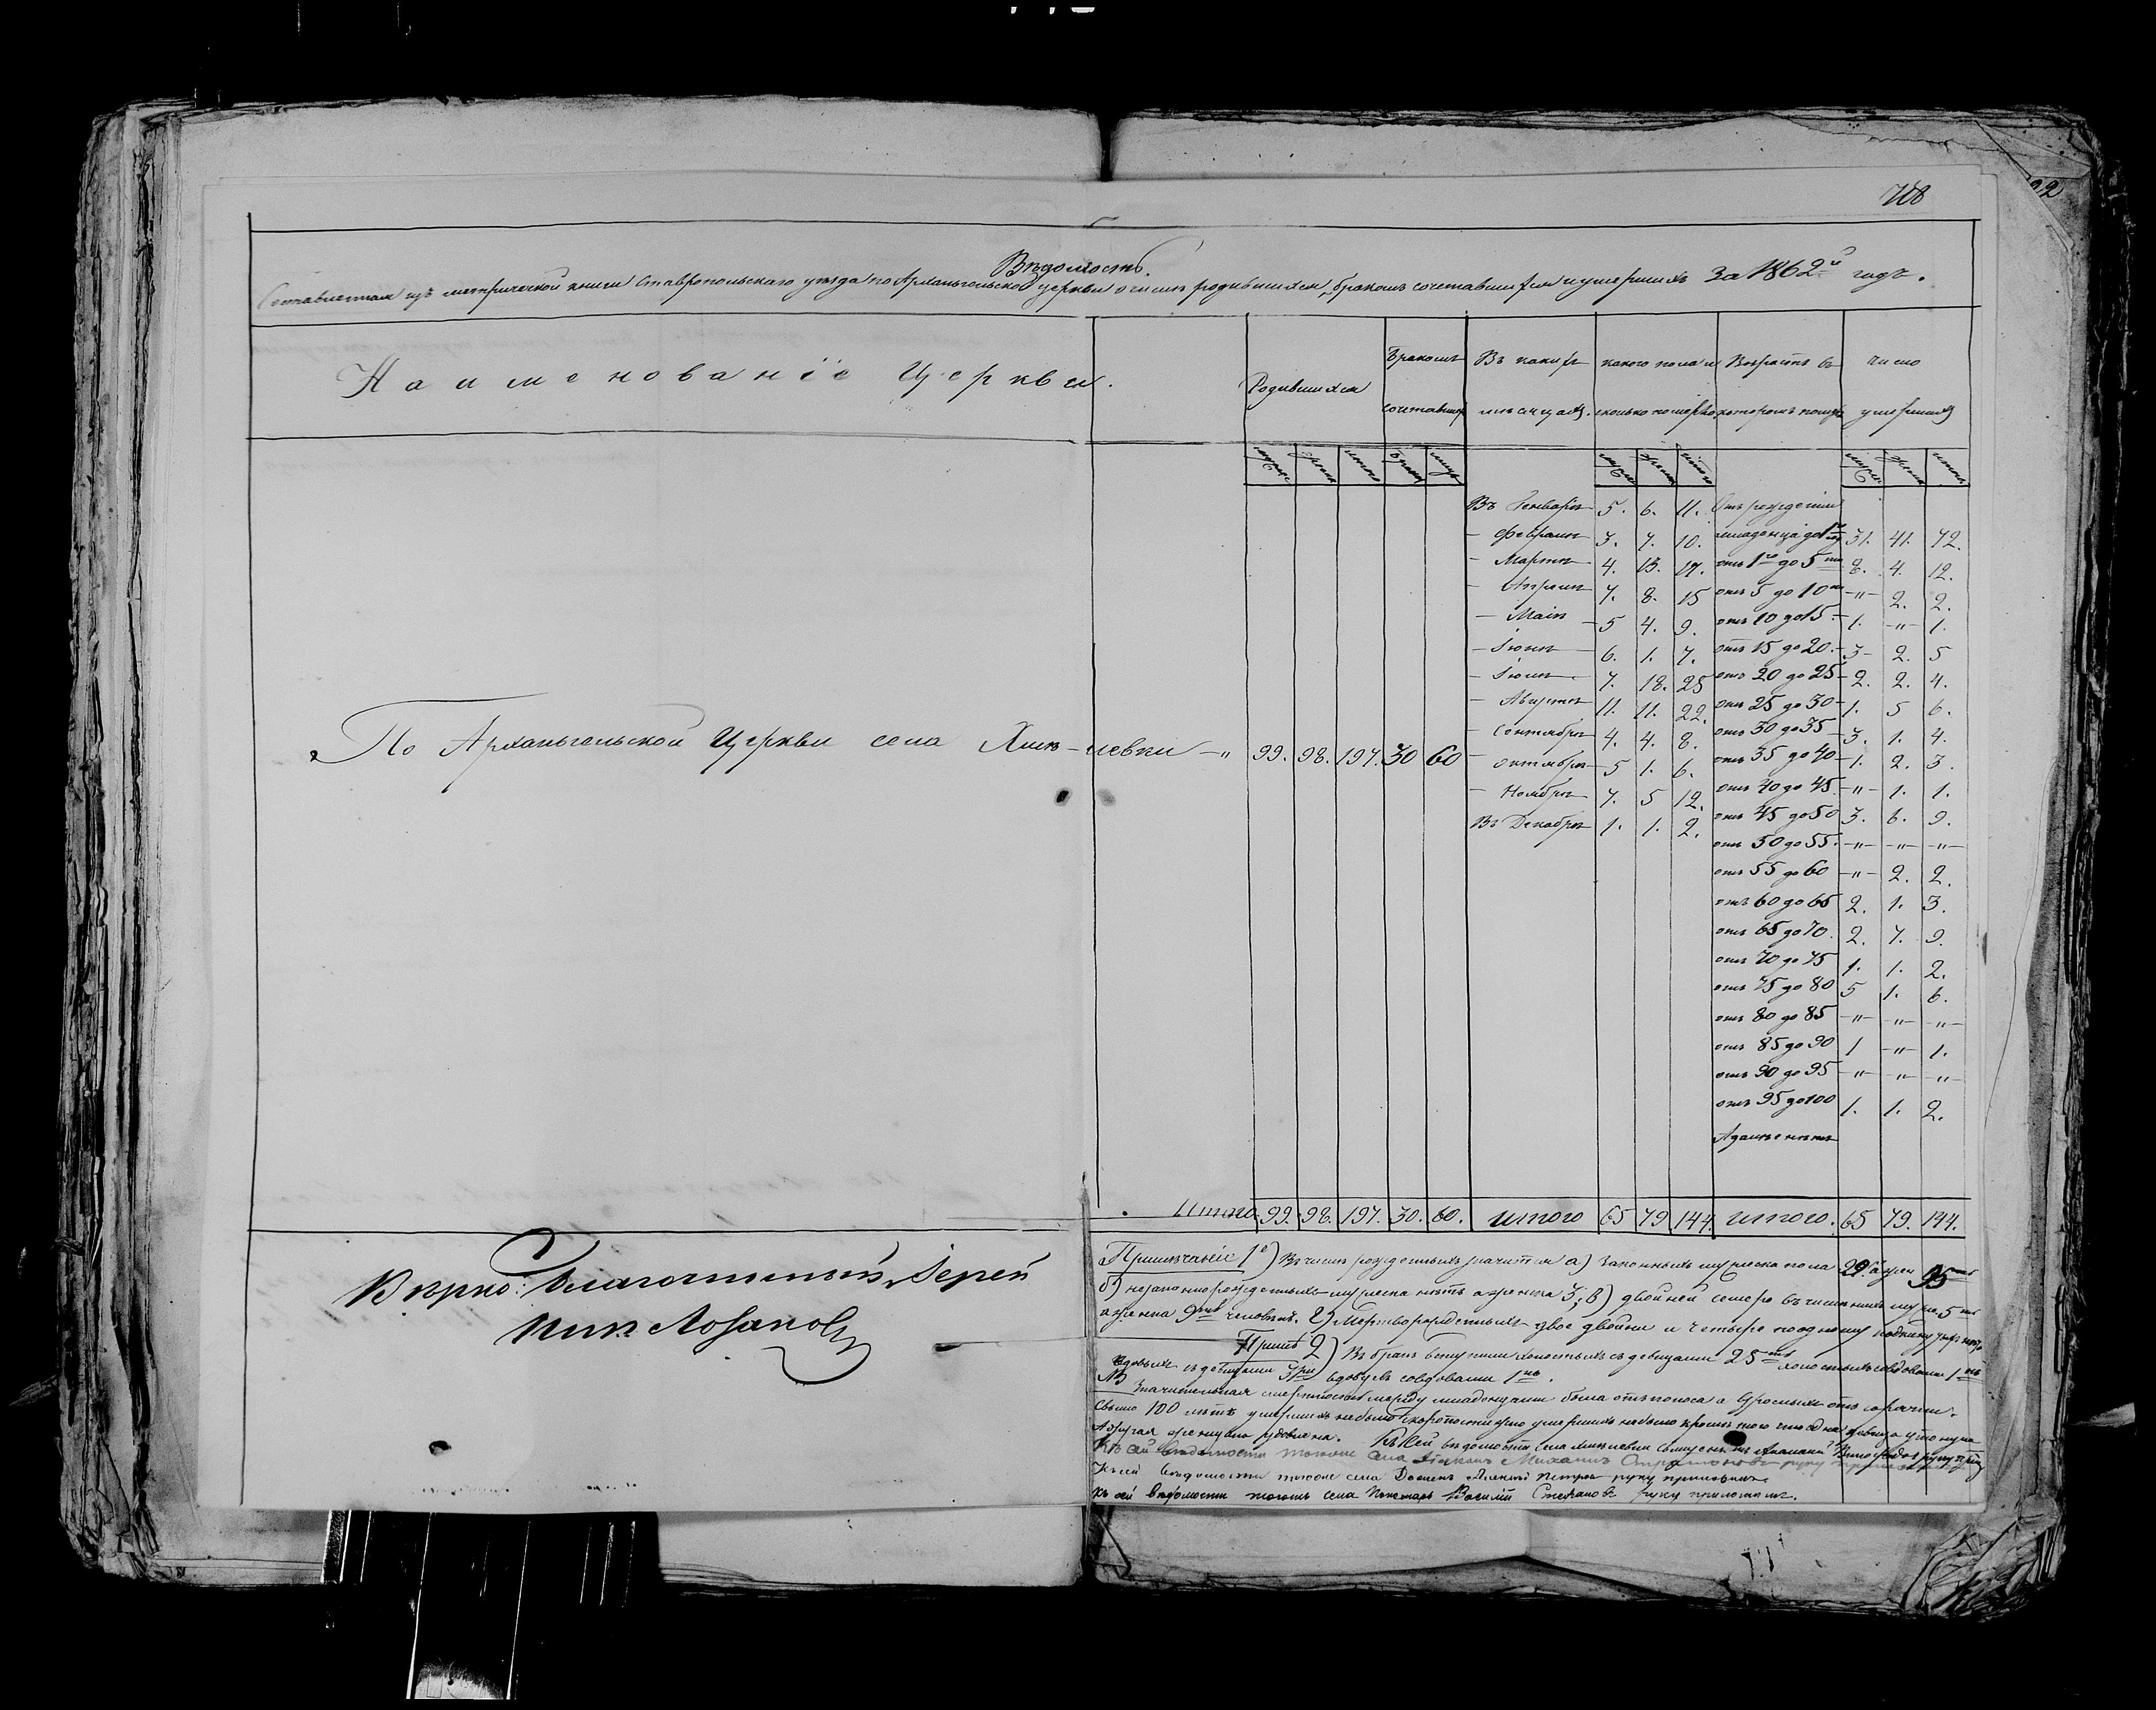 718
22
Вѣдомость.
Составленная изъ метрической книги Ставропольскаго уѣзда по Архангельской церкви о числѣ родившихся, бракомъ сочетавшихся и умершихъ за 1862й годъ.
Наименованіе Церкви.
Родившихся
Бракомъ сочетавших
Въ какихъ мѣсяцахъ.
какого пола и сколько померло
Возрастъ въ которомъ
число умершихъ
мужес женск итого браков лицъ
мужес женск итого
мужес женск итого
По Архангельской Церкви села Хмѣлевки — " 99. 98. 197. 30 60
Въ Генварѣ 5. 6. 11.
— Февралѣ 3. 7. 10.
— Мартѣ 4. 13. 17.
— Апрѣлѣ 7. 8. 15
— Маіѣ 5 4. 9.
— Іюнѣ 6. 1. 7.
— Іюлѣ 7. 18. 25
— Августѣ 11. 11. 22.
— Сентябрѣ 4. 4. 8.
— Октябрѣ 5 1. 6.
— Ноябрѣ 7. 5 12.
Въ Декабрѣ 1. 1. 2.
Отъ рожденія
младенца до 1го 31. 41. 72.
отъ 1го до 5ти 8. 4. 12.
отъ 5 до 10ти —"— 2. 2.
отъ 10 до 15. — 1. —"— 1.
отъ 15 до 20. — 3 — 2. 5
отъ 20 до 25 — 2. 2. 4.
отъ 25 до 30 — 1. 5 6.
отъ 30 до 35 — 3. 1. 4.
отъ 35 до 40 — 1. 2. 3.
отъ 40 до 45. —"— 1. 1.
отъ 45 до 50 3. 6. 9.
отъ 50 до 55. —"— —"— —"—
отъ 55 до 60 —"— 2. 2.
отъ 60 до 65 2. 1. 3.
отъ 65 до 70. 2. 7. 9.
отъ 70 до 75 1. 1. 2.
отъ 75 до 80 5 1. 6.
отъ 80 до 85 —"— —"— —"—
отъ 85 до 90 1 —"— 1.
отъ 90 до 95 —"— —"— —"—
отъ 95 до 100 1. 1. 2.
А далѣе нѣтъ
Итого 99. 98. 197. 30. 60. итого 65 79 144. итого. 65 79. 144.
Вѣрно: Благочинный, Іерей
Примѣчаніе 1е) Въ числѣ рожденныхъ значится а) законныхъ мужеска пола
б) незаконнорожденныхъ мужеска нѣтъ а женска 3; в) двойней семеро въ числѣ ихъ муж. 5ть
а женска 9ть человѣкъ. 2) Мертворожденныхъ двое двойни и четыре по одному
Примѣ 2) Въ бракъ вступили холостыхъ съ девицами 25ть холостыхъ со вдовами 1нъ
вдовыхъ съ девицами 3ри вдовцев со вдовами 1нъ.
NB Значительная смертность между младенцами была отъ поноса а взрослыхъ отъ горячки.
Свыше 100 лѣтъ умершихъ не было Скоропостижно умершихъ не было кромѣ того что одна девица утонула
А другая женщина удавлена. Къ сей вѣдомости села Хмѣлевки Священникъ
Къ сей вѣдомости тогоже села Діаконъ Михаилъ руку приложилъ
Къ сей вѣдомости тогоже села Дьячекъ Алексѣй Петровъ руку приложилъ.
Къ сей вѣдомости тогожъ села Пономарь Василій Стефановъ руку приложилъ.